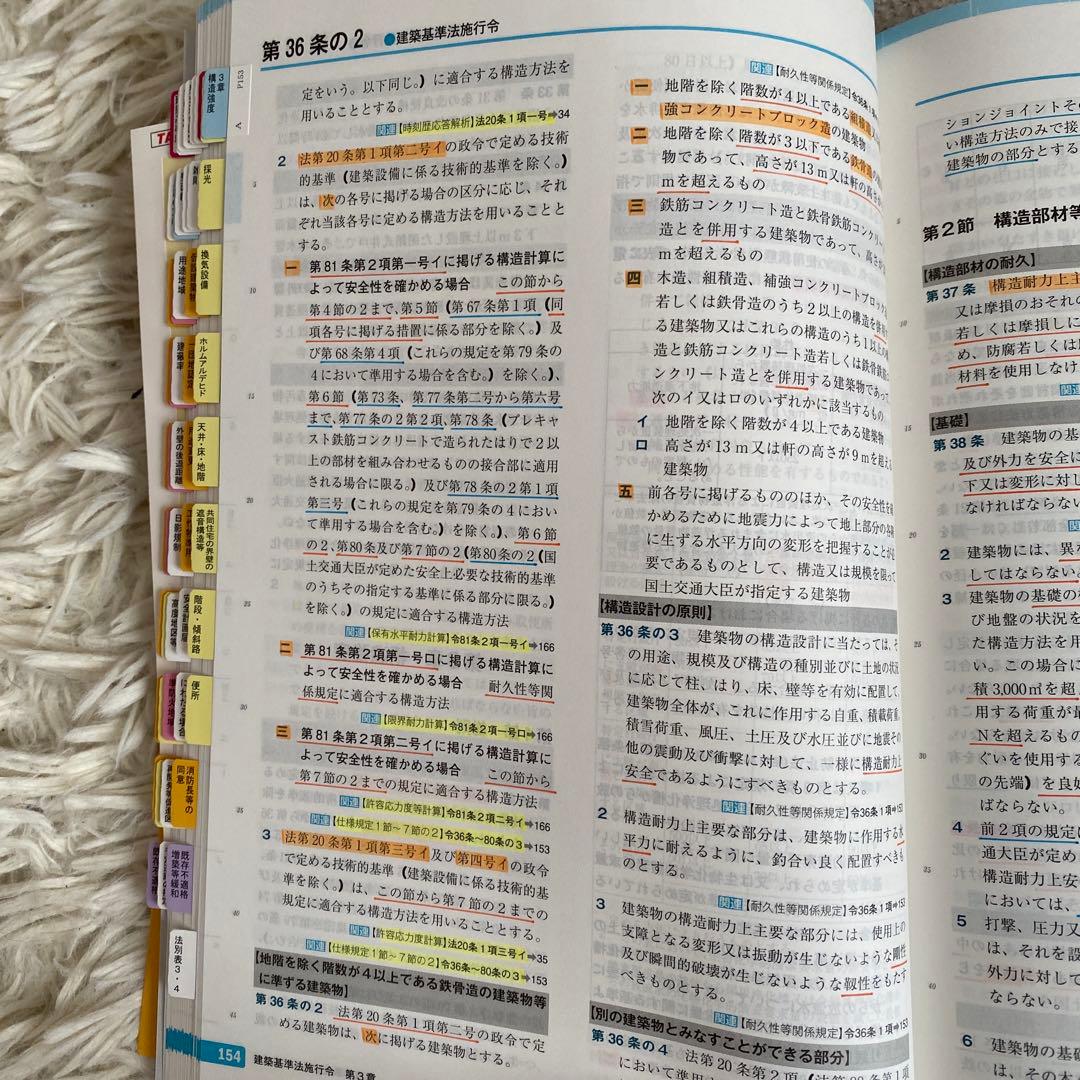 第36条の2 ●建築基準法施行令
定をいう。以下同じ。)に適合する構造方法を
用いることとする。
関連【時刻歴応答解析】法20条1項一号➡34
2 法第20条第1項第二号イの政令で定める技術
的基準(建築設備に係る技術的基準を除く。)
は、次の各号に掲げる場合の区分に応じ、それ
ぞれ当該各号に定める構造方法を用いることと
する。
一 第81条第2項第一号イに掲げる構造計算に
よって安全性を確かめる場合 この節から
第4節の2まで、第5節(第67条第1項(同
項各号に掲げる措置に係る部分を除く。)及
び第68条第4項(これらの規定を第79条の
4において準用する場合を含む。)を除く。)、
第6節(第73条、第77条第二号から第六号
まで、第77条の2第2項、第78条(プレキャ
スト鉄筋コンクリートで造られたはりで2以
上の部材を組み合わせるものの接合部に適用
される場合に限る。)及び第78条の2第1項
第三号(これらの規定を第79条の4におい
て準用する場合を含む。)を除く。)、第6節
の2、第80条及び第7節の2(第80条の2(国
土交通大臣が定めた安全上必要な技術的基準
のうちその指定する基準に係る部分に限る。)
を除く。)の規定に適合する構造方法
関連【保有水平耐力計算】令81条2項一号イ➡166
二 第81条第2項第一号ロに掲げる構造計算に
よって安全性を確かめる場合 耐久性等関
係規定に適合する構造方法
関連【限界耐力計算】令81条2項一号ロ➡166
三 第81条第2項第二号イに掲げる構造計算に
よって安全性を確かめる場合 この節から
第7節の2までの規定に適合する構造方法
関連【許容応力度等計算】令81条2項二号イ➡166
関連【仕様規定1節~7節の2】令36条~80条の3➡153
3 法第20条第1項第三号イ及び第四号イの政令
で定める技術的基準(建築設備に係る技術的基
準を除く。)は、この節から第7節の2までの
規定に適合する構造方法を用いることとする。
関連【許容応力度計算】法20条1項三号イ➡35
関連【仕様規定1節~7節の2】令36条~80条の3➡153
【地階を除く階数が4以上である鉄骨造の建築物等
に準ずる建築物】
第36条の2 法第20条第1項第二号の政令で定
める建築物は、次に掲げる建築物とする。
154 建築基準法施行令 第3章
関連【耐久性等関係規定】令36条1
一 地階を除く階数が4以上である組積造
強コンクリートブロック造の建築物
二 地階を除く階数が3以下である鉄骨造の
物であって、高さが13m又は軒の高さが
mを超えるもの
三 鉄筋コンクリート造と鉄骨鉄筋コンクリー
造とを併用する建築物であって、高さが
mを超えるもの
四 木造、組積造、補強コンクリートブロック
若しくは鉄骨造のうち2以上の構造を併用
る建築物又はこれらの構造のうち1以上の
造と鉄筋コンクリート造若しくは鉄骨鉄筋
ンクリート造とを併用する建築物であって、
次のイ又はロのいずれかに該当するもの
イ 地階を除く階数が4以上である建築物
ロ 高さが13m又は軒の高さが9mを超える
建築物
五 前各号に掲げるもののほか、その安全性を
かめるために地震力によって地上部分の各
に生ずる水平方向の変形を把握することが
要であるものとして、構造又は規模を限って
国土交通大臣が指定する建築物
【構造設計の原則】
第36条の3 建築物の構造設計に当たっては、そ
の用途、規模及び構造の種別並びに土地の状況
に応じて柱、はり、床、壁等を有効に配置して、
建築物全体が、これに作用する自重、積載荷重、
積雪荷重、風圧、土圧及び水圧並びに地震その
他の震動及び衝撃に対して、一様に構造耐力上
安全であるようにすべきものとする。
関連【耐久性等関係規定】令36条1項➡153
2 構造耐力上主要な部分は、建築物に作用する水
平力に耐えるように、釣合い良く配置すべきも
のとする。
関連【耐久性等関係規定】令36条1項➡153
3 建築物の構造耐力上主要な部分には、使用上の
支障となる変形又は振動が生じないような剛性
及び瞬間的破壊が生じないような靱性をもたす
べきものとする。
関連【耐久性等関係規定】令36条1項➡153
【別の建築物とみなすことができる部分】
第36条の4 法第20条第2項
ションジョイントそ
い構造方法のみで接
建築物の部分とする
第2節 構造部材等
【構造部材の耐久】
第37条 構造耐力上主
又は摩損のおそれの
若しくは摩損しに
め、防腐若しくは
材料を使用しなけ
【基礎】
第38条 建築物の基
及び外力を安全に
下又は変形に対し
なければならない
2 建築物には、異な
してはならない。
3 建築物の基礎の
び地盤の状況を
た構造方法を用
い。この場合に
積3,000㎡を超
用する荷重が最
Nを超えるもの
ぐいを使用する
の先端)を良好
ばならない。
4 前2項の規定は
通大臣が定め
構造耐力上安
においては、
5 打撃、圧力又
は、それを設
外力に対して
ならない。
6 建築物の基礎
3章
構造強度
P153
A
採光
換気設備
用途地域
ホルムアルデヒド
建築率
天井・床・地階
外壁の後退距離
共同住宅の界壁の
遮音構造等
日影規制
階段・傾斜路
高度地区等
便所
消防長等の
同意
既存不適格
増築等緩和
法別表3・4